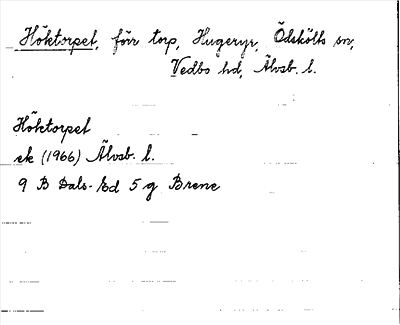 Höktorpet, förr torp, Hugeryr, Ödskölts sn,
Vedbo hd, Älvsb. l.
Höktorpet
ek (1966) Älvsb. l.
9 B Dals-Ed 5 g Brene